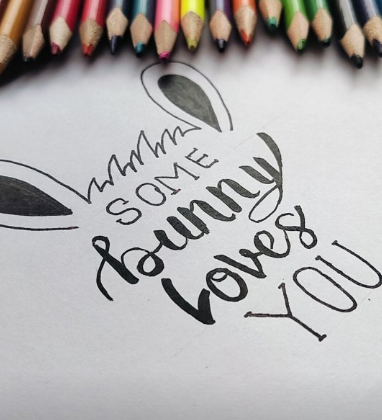 SOME
bunny
loves
YOU